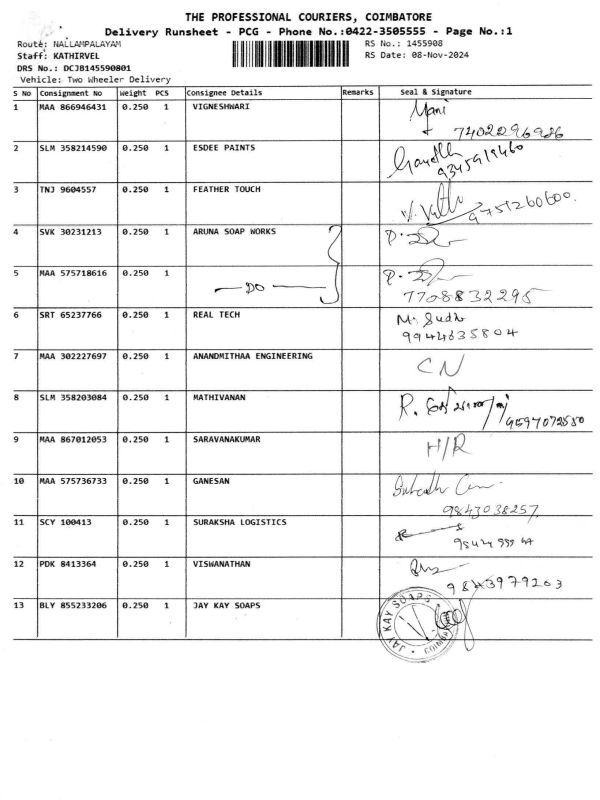 THE PROFESSIONAL COURIERS, COIMBATORE
Delivery Runsheet - PCG - Phone No.:0422-3505555 - Page No.:1
Route: NALLAMPALAYAM RS No.: 1455908
Staff: KATHIRVEL RS Date: 08-Nov-2024
DRS No.: DCJB145590801
Vehicle: Two Wheeler Delivery
S No Consignment No Weight PCS Consignee Details Remarks Seal & Signature
1 MAA 866946431 0.250 1 VIGNESHWARI Mani
7402096926
2 SLM 358214590 0.250 1 ESDEE PAINTS
9345919460
3 TNJ 9604557 0.250 1 FEATHER TOUCH
9751260600.
4 SVK 30231213 0.250 1 ARUNA SOAP WORKS
5 MAA 575718616 0.250 1 DO
7708832295
6 SRT 65237766 0.250 1 REAL TECH M. Sudh
9944635804
7 MAA 302227697 0.250 1 ANANDMITHAA ENGINEERING CN
8 SLM 358203084 0.250 1 MATHIVANAN R.
9597072550
9 MAA 867012053 0.250 1 SARAVANAKUMAR H/R
10 MAA 575736733 0.250 1 GANESAN
9843038257
11 SCY 100413 0.250 1 SURAKSHA LOGISTICS
12 PDK 8413364 0.250 1 VISWANATHAN
9843979203
13 BLY 855233206 0.250 1 JAY KAY SOAPS JAY KAY SOAPS